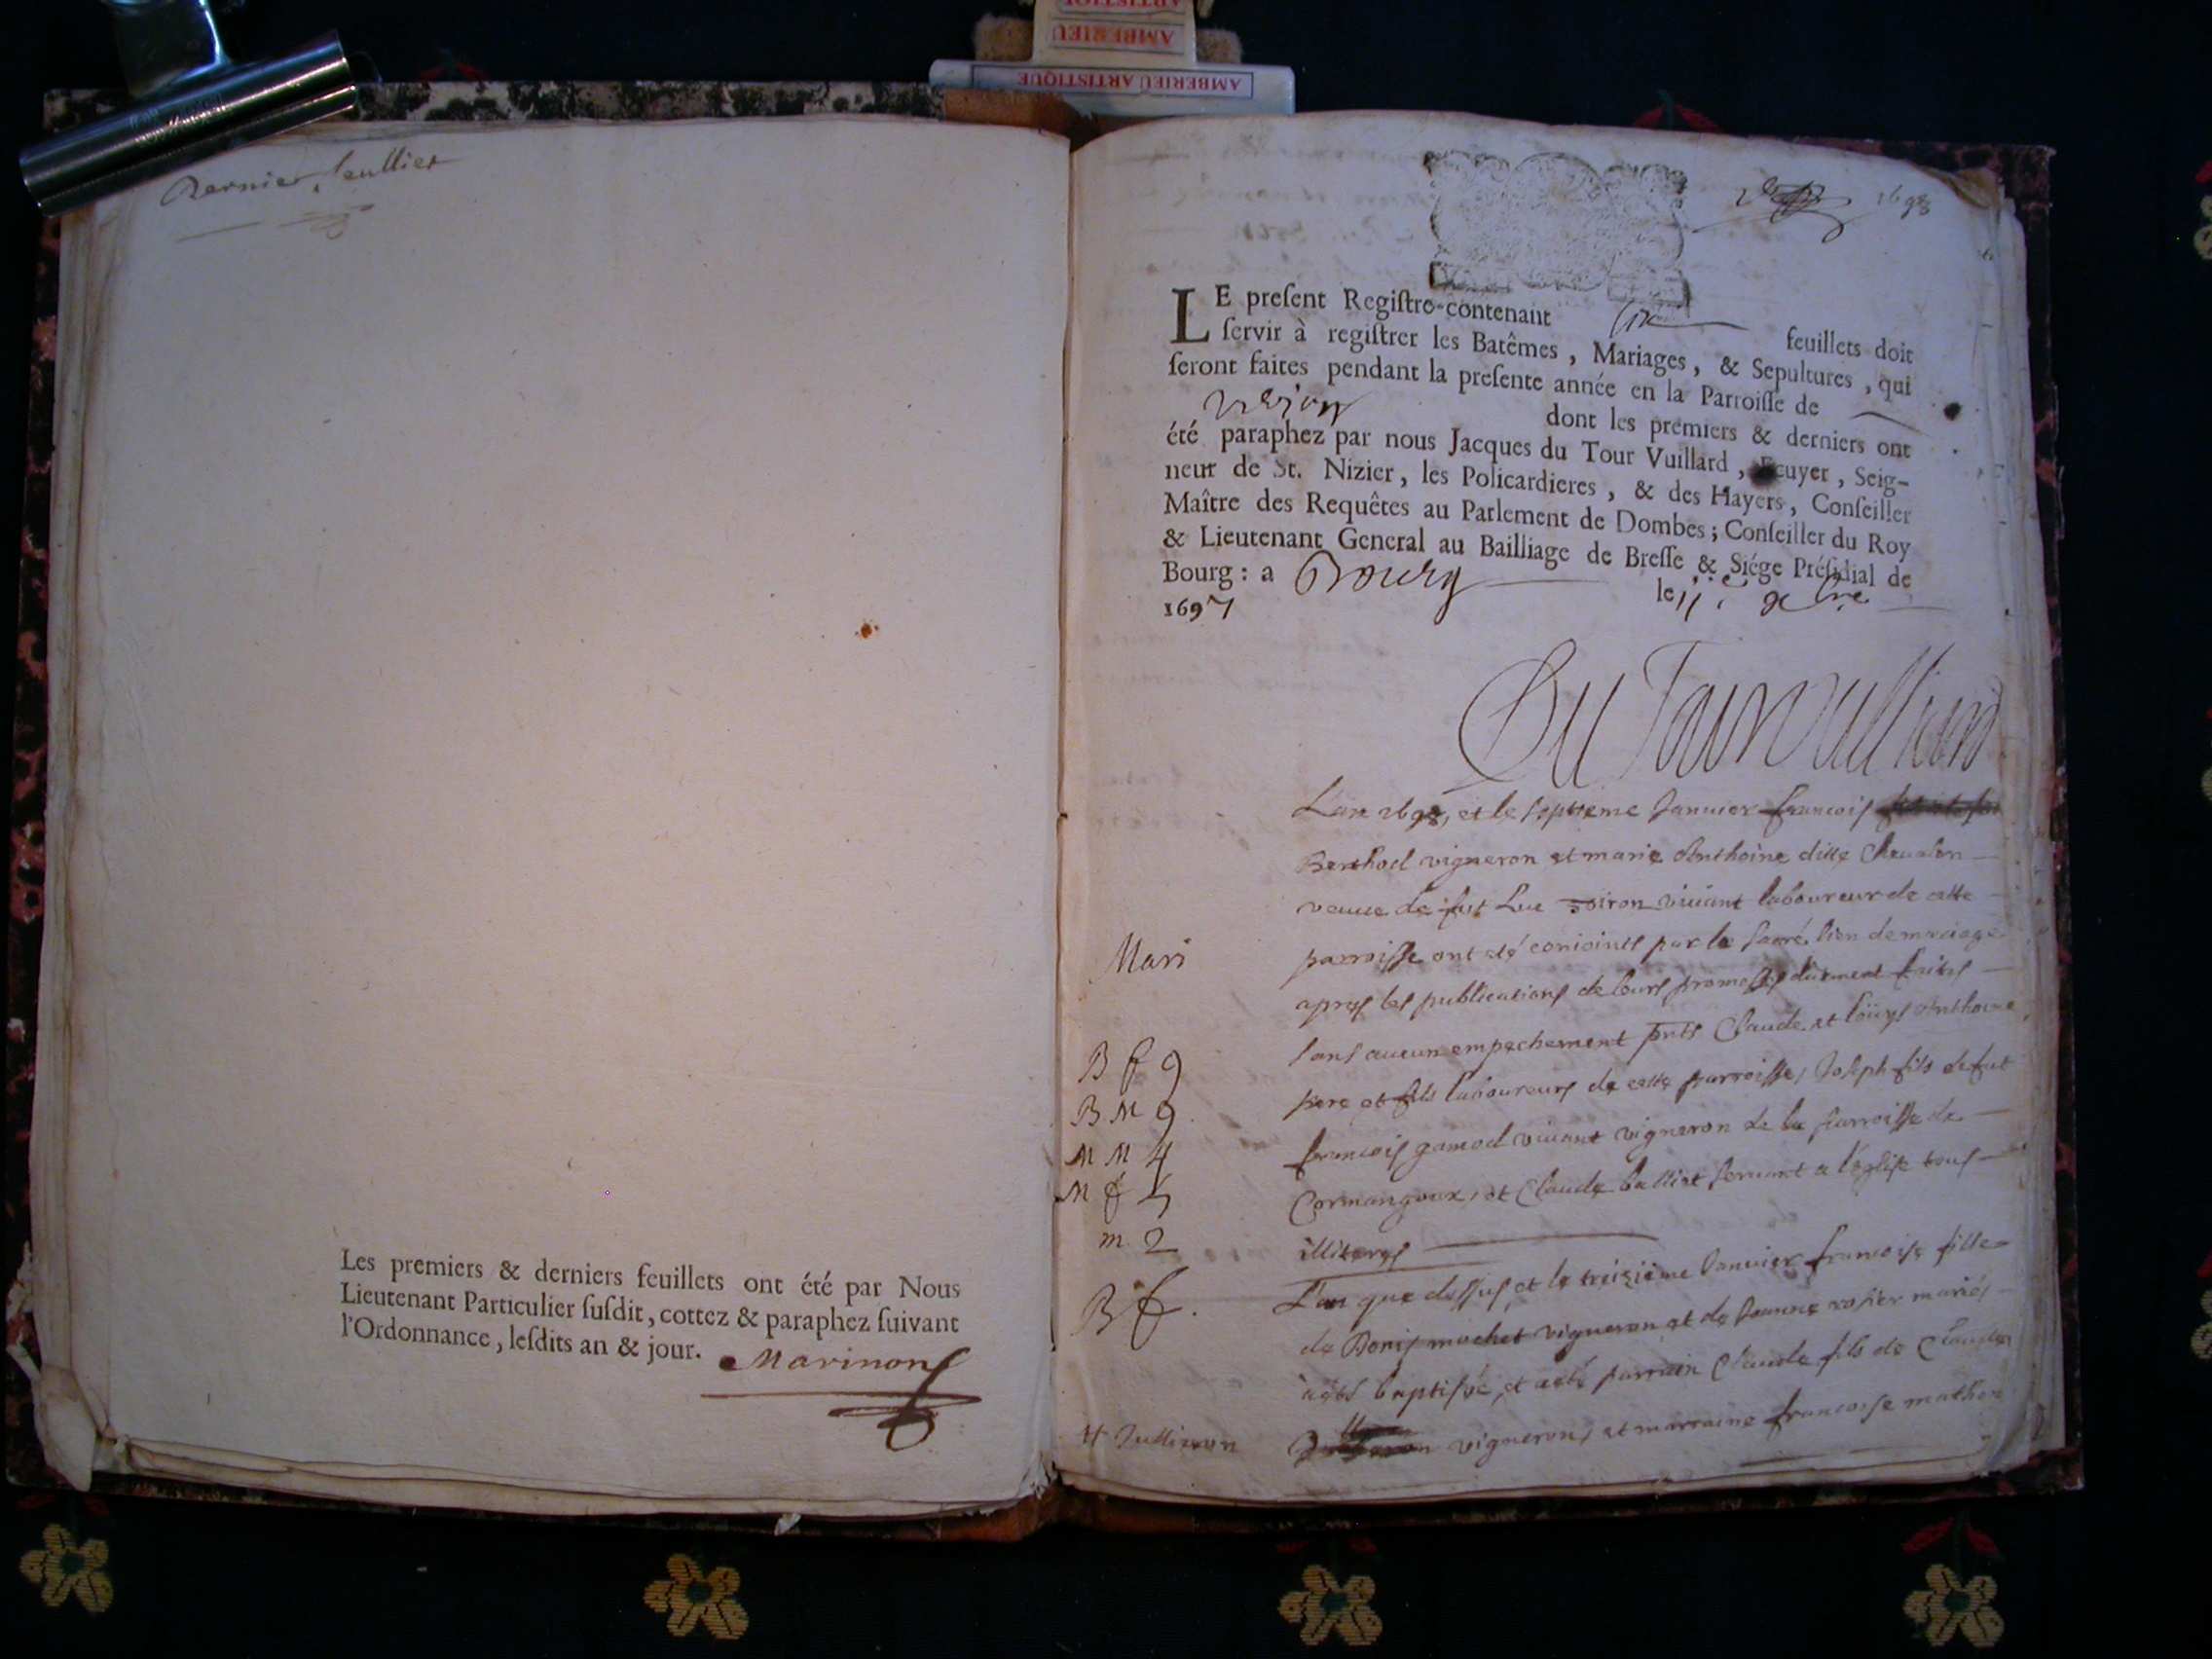 AMBERIEU
AMBERIEU ARTISTIQUE
Dernier feullier
Les premiers & derniers feuillets ont été par Nous
Lieutenant Particulier ſuſdit, cottez & paraphez ſuivant
l'Ordonnance, leſdits an & jour.
Marinon
1698
LE preſent Regiſtre contenant six feuillets doit
ſervir à regiſtrer les Batêmes, Mariages, & Sepultures, qui
ſeront faites pendant la preſente année en la Parroiſſe de
dont les premiers & derniers ont
été paraphez par nous Jacques du Tour Vuillard, Ecuyer, Seig-
neur de St. Nizier, les Policardieres, & des Hayers, Conſeiller
Maître des Requêtes au Parlement de Dombes; Conſeiller du Roy
& Lieutenant General au Bailliage de Breſſe & Siége Préſidial de
Bourg: a Bourg le
1697
Du Tour Vuilliard
L'an 1698, et le septieme Janvier francois
Berthod vigneron et marie Anthoine ditte Chevalon
veuve de fut Luc voiron vivant laboureur de cette
Mari
parroisse ont eté conioints par le sacré lien de mariage
apres les publications de leurs promesses duement faites
sans aucun empechement pnts Claude et louys Anthoine
B f 9
pere et fils laboureurs de cette parroisse, Joseph fils de fut
B M 9.
francois gamod vivant vigneron de la parroisse de
M M 4
Cormangoux, et Claude balliet servant a l'eglise tous
M f 5
m. 2
illiteres
B f.
L'an que dessus et le treizième Janvier francoise fille
de Denis mochet vigneron et de Jeanne rosier mariés
a eté baptisée, et a eté parrain Claude fils de Claude
# Jullieron
vigneron, et marraine francoise mathon